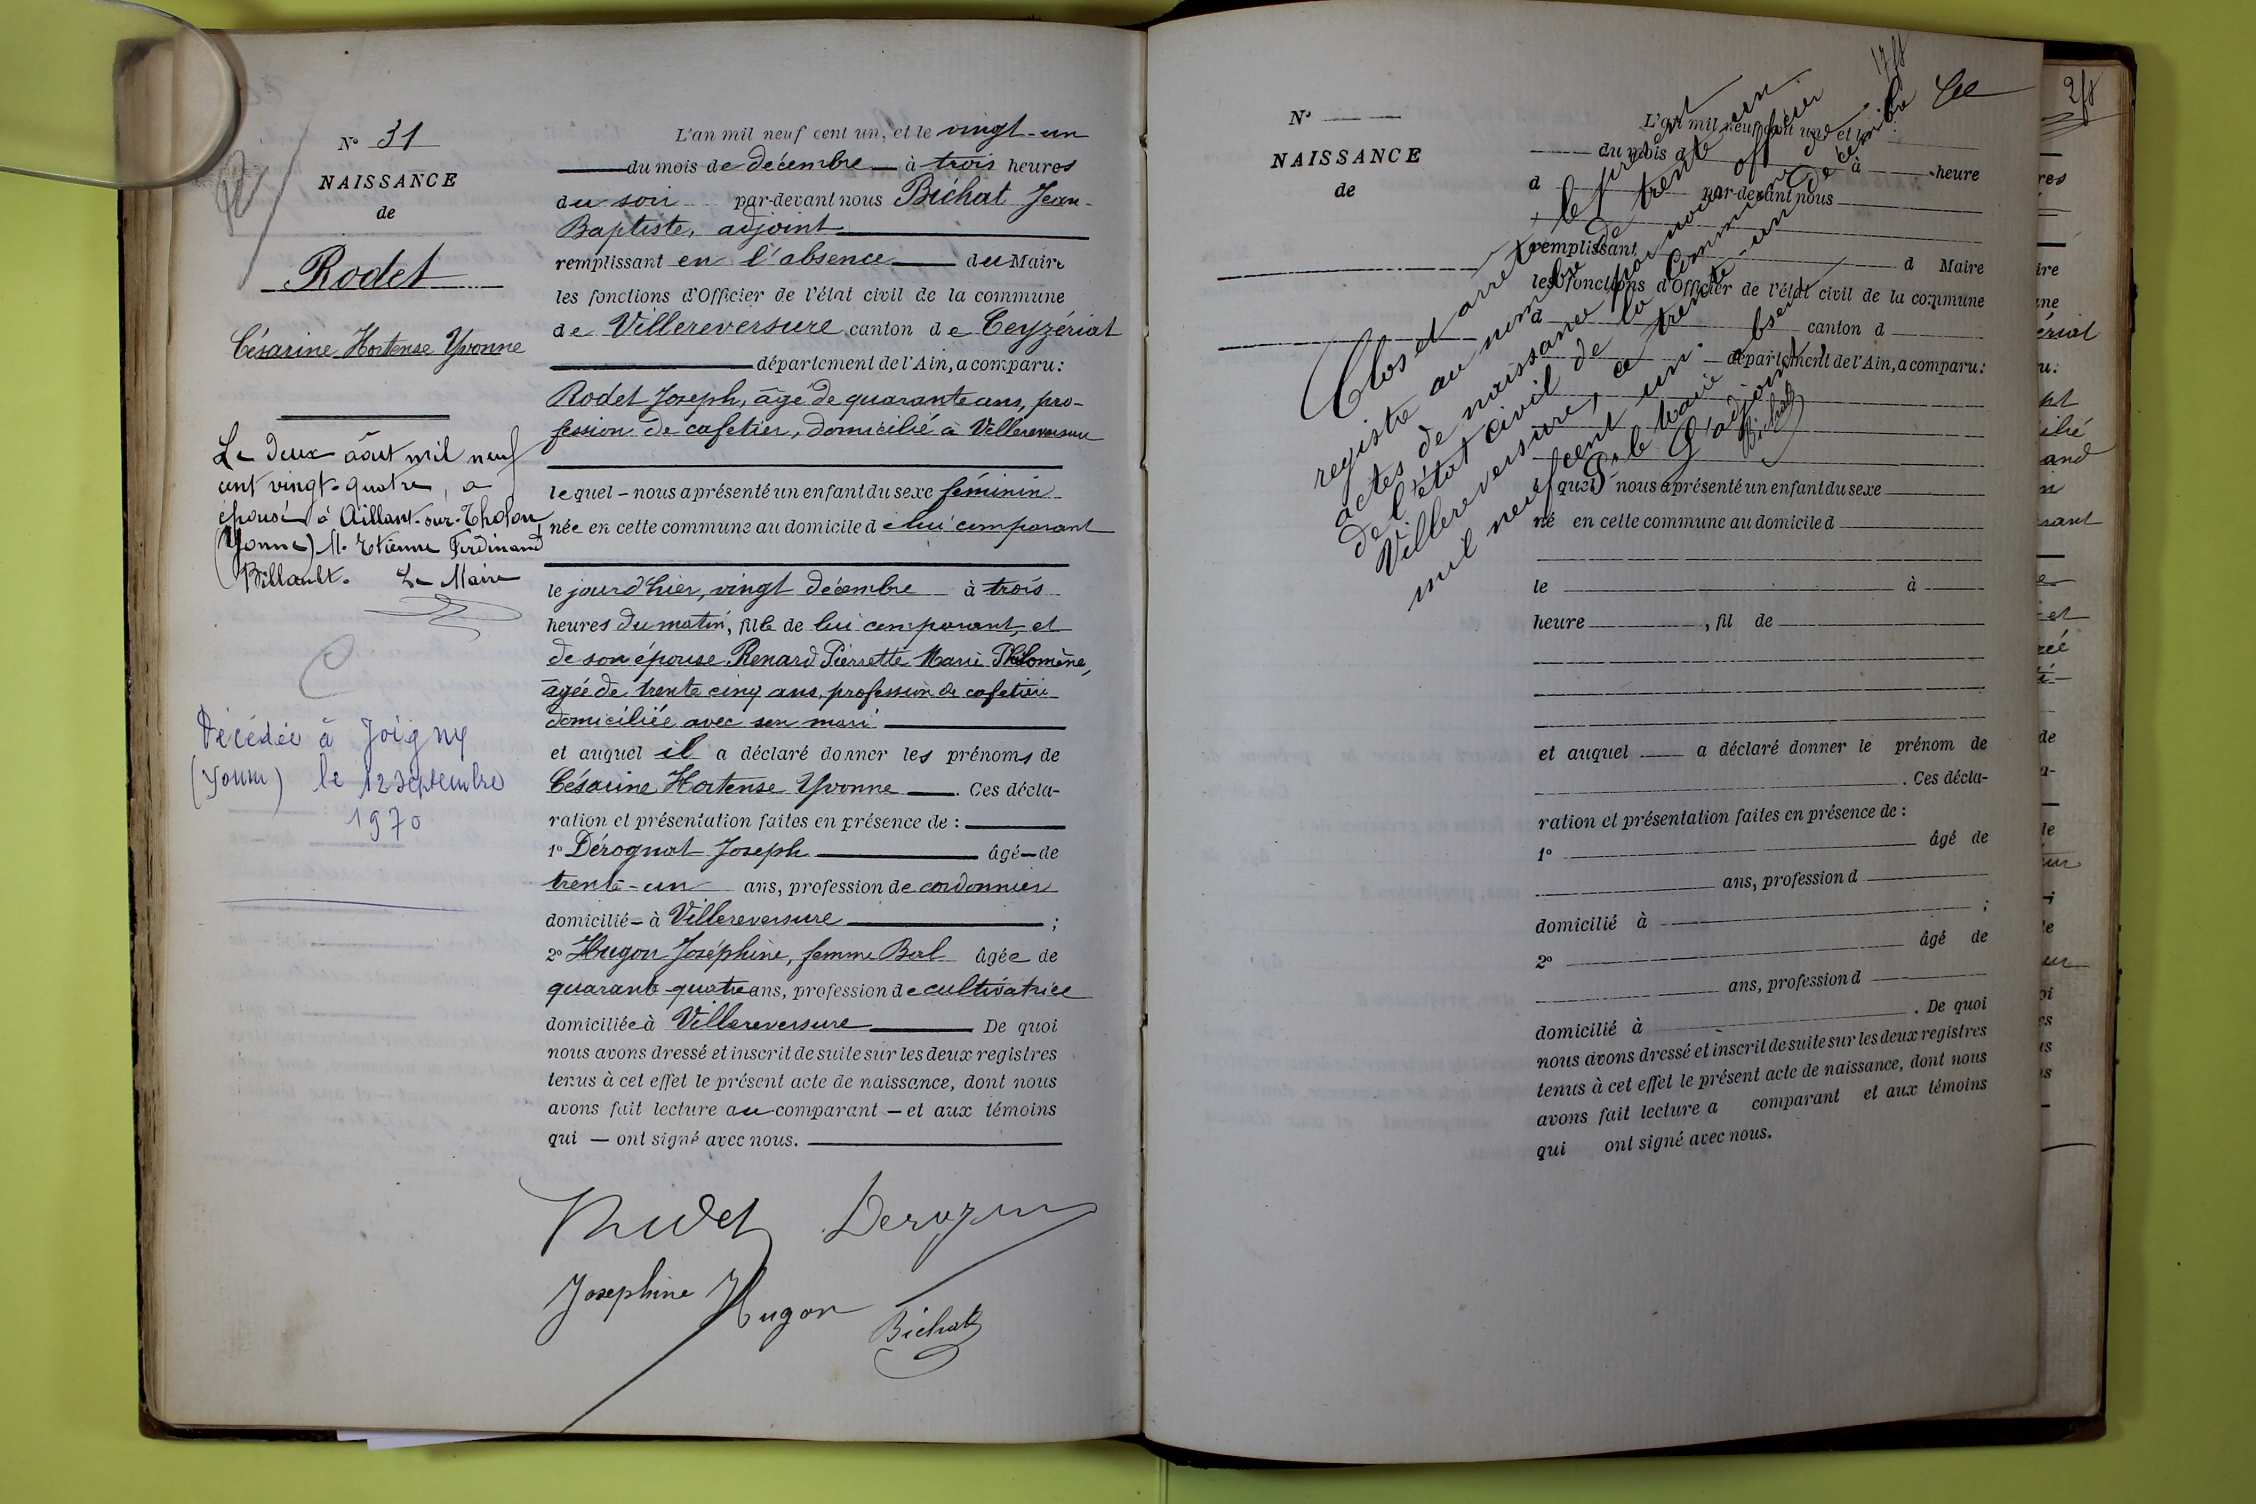 N° 31
NAISSANCE
de
Rodet
Césarine Hortense Yvonne
Le deux août mil neuf
cent vingt-quatre, a
épousé à Aillant-sur-Tholon
(Yonne) M. Etienne Ferdinand
Billault. Le Maire
Décédée à Joigny
(Yonne) le 12 septembre
1970
L'an mil neuf cent un, et le vingt-un
du mois de décembre à trois heures
du soir par-devant nous Bichat Jean-
Baptiste, adjoint
remplissant en l'absence du Maire
les fonctions d'Officier de l'état civil de la commune
de Villereversure canton de Ceyzériat
département de l'Ain, a comparu:
Rodet Joseph, âgé de quarante ans, pro-
fession de cafetier, domicilié à Villereversure
lequel - nous a présenté un enfant du sexe féminin
née en cette commune au domicile de lui comparant
le jour d'hier, vingt décembre à trois
heures du matin, fille de lui comparant, et
de son épouse Renard Pierrette Marie Philomène,
âgée de trente cinq ans, profession de cafetière
domiciliée avec son mari
et auquel il a déclaré donner les prénoms de
Césarine Hortense Yvonne. Ces décla-
ration et présentation faites en présence de :
1° Dérognat Joseph âgé-de
trente-un ans, profession de cordonnier
domicilié- à Villereversure ;
2° Hugon Joséphine, femme Bal âgée de
quarante-quatre ans, profession de cultivatrice
domiciliée à Villereversure De quoi
nous avons dressé et inscrit de suite sur les deux registres
tenus à cet effet le présent acte de naissance, dont nous
avons fait lecture au comparant - et aux témoins
qui - ont signé avec nous.
Rodet
Josephine Hugon
Bichat
N°
NAISSANCE
de
L'an mil neuf cent un, et le
du mois d à heure
d par-devant nous
remplissant d Maire
les fonctions d'Officier de l'état civil de la commune
d canton d
département de l'Ain, a comparu:
quel nous a présenté un enfant du sexe
né en cette commune au domicile d
le à
heure , fil de
et auquel a déclaré donner le prénom de
. Ces décla-
ration et présentation faites en présence de :
1° âgé de
ans, profession d
domicilié à ;
2° âgé de
ans, profession d
domicilié à . De quoi
nous avons dressé et inscrit de suite sur les deux registres
tenus à cet effet le présent acte de naissance, dont nous
avons fait lecture a comparant et aux témoins
qui ont signé avec nous.
Clos et arrêté, le présent
registre au nombre de trente un
actes de naissance par nous officier
de l'état civil de la commune de
Villereversure, ce trente-un décembre
mil neuf cent un.
Pr le Maire absent
L'adjoint
Bichat